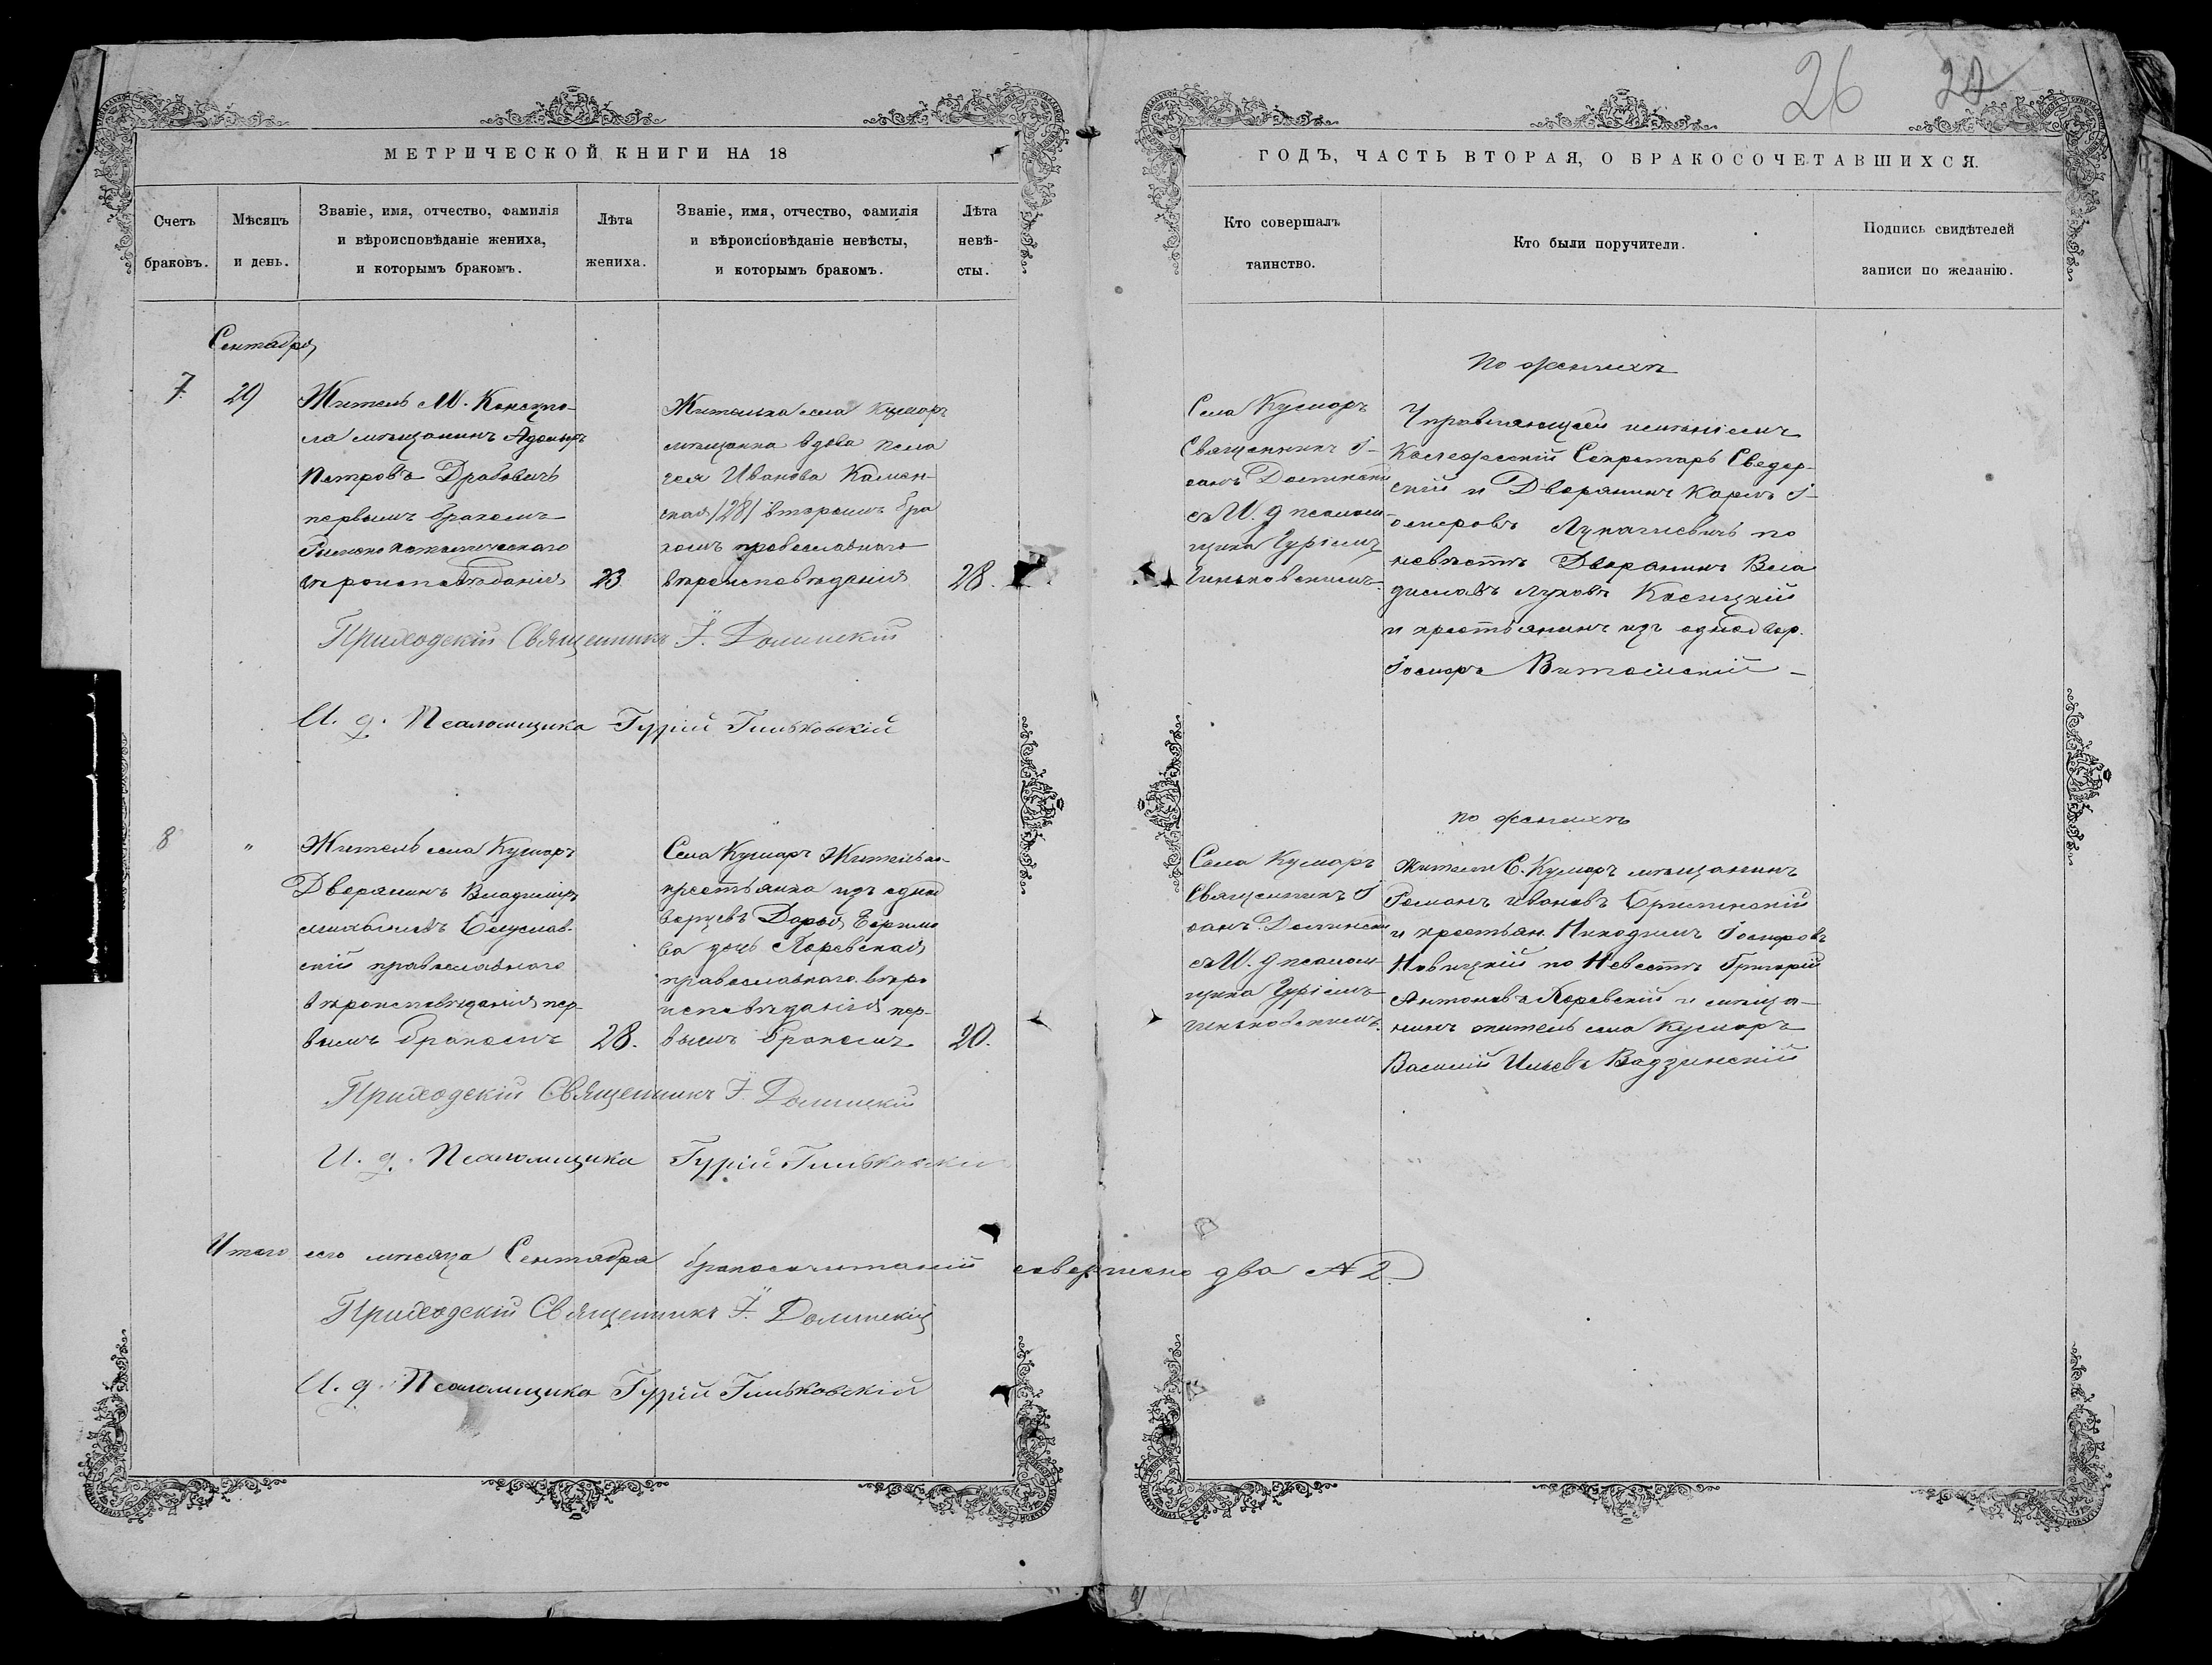 26 22
МЕТРИЧЕСКОЙ КНИГИ НА 18
ГОДЪ, ЧАСТЬ ВТОРАЯ, О БРАКОСОЧЕТАВШИХСЯ.
Счетъ
браковъ.
Мѣсяцъ
и день.
Званіе, имя, отчество, фамилія
и вѣроисповѣданіе жениха,
и которымъ бракомъ.
Лѣта
жениха.
Званіе, имя, отчество, фамилія
и вѣроисповѣданіе невѣсты,
и которымъ бракомъ.
Лѣта
невѣ-
сты.
Кто совершалъ
таинство.
Кто были поручители.
Подпись свидѣтелей
записи по желанію.
Сентабря
7
29
Житель М. Констуно-
ла мѣщанинъ
Петровъ Драбовичъ
первымъ бракомъ
Римско Католическаго
вѣроисповѣданія
23
Жителька села Кушмаръ
мѣщанка вдова Пела
гея Иванова Камен-
ская /28/ вторымъ бра
комъ православнаго
вѣроисповѣданія
28.
Села Кушмаръ
Священникъ І-
оанъ Долинскій
съ И. д псаломщ-
щика Гуріемъ
Гиньковскимъ.
По женихѣ
Управляющей имѣніемъ
Коллежескій Секретарь
и Дворянинъ Карлъ І-
осифовъ по
невѣстѣ Дворянинъ Вла
диславъ Луковъ Косицкій
и крестьянинъ изъ однодвор.
Іосифъ
Приходскій Священникъ І. Долинскій
И. д. Псаломщика Гурій Гиньковскій
8
"
Житель села Кушмаръ
Дворянинъ Владиміръ
Богуслав-
скій православнаго
вѣроисповѣданія пер-
вымъ бракомъ
28.
Села Кушмаръ Жителька-
крестьянка изъ одно
ворцевъ Дарья Ефимо
ва дочь
православнаго вѣро
исповѣданія пер-
вымъ бракомъ
20.
Села Кушмаръ
Священникъ І
оанъ Долинскій
съ И. д псаломщ-
щика Гуріемъ
Гиньковскимъ.
по женихѣ
жители С. Кушмаръ мѣщанинъ
Романъ Ивановъ
и крестьян. Никодимъ Іосифовъ
Новицкій по Невестѣ Григорій
Антоновъ и мѣща-
нинъ житель села Кушмаръ
Василій Ильевъ Вадзинскій
Приходскій Священникъ І. Долинскій
И. д. Псаломщика Гурій Гиньковскій
Итого сего мѣсяца Сентября бракосочитаній совершено два № 2.
Приходскій Священникъ І. Долинскій
И. д. Псаломщика Гурій Гиньковскій